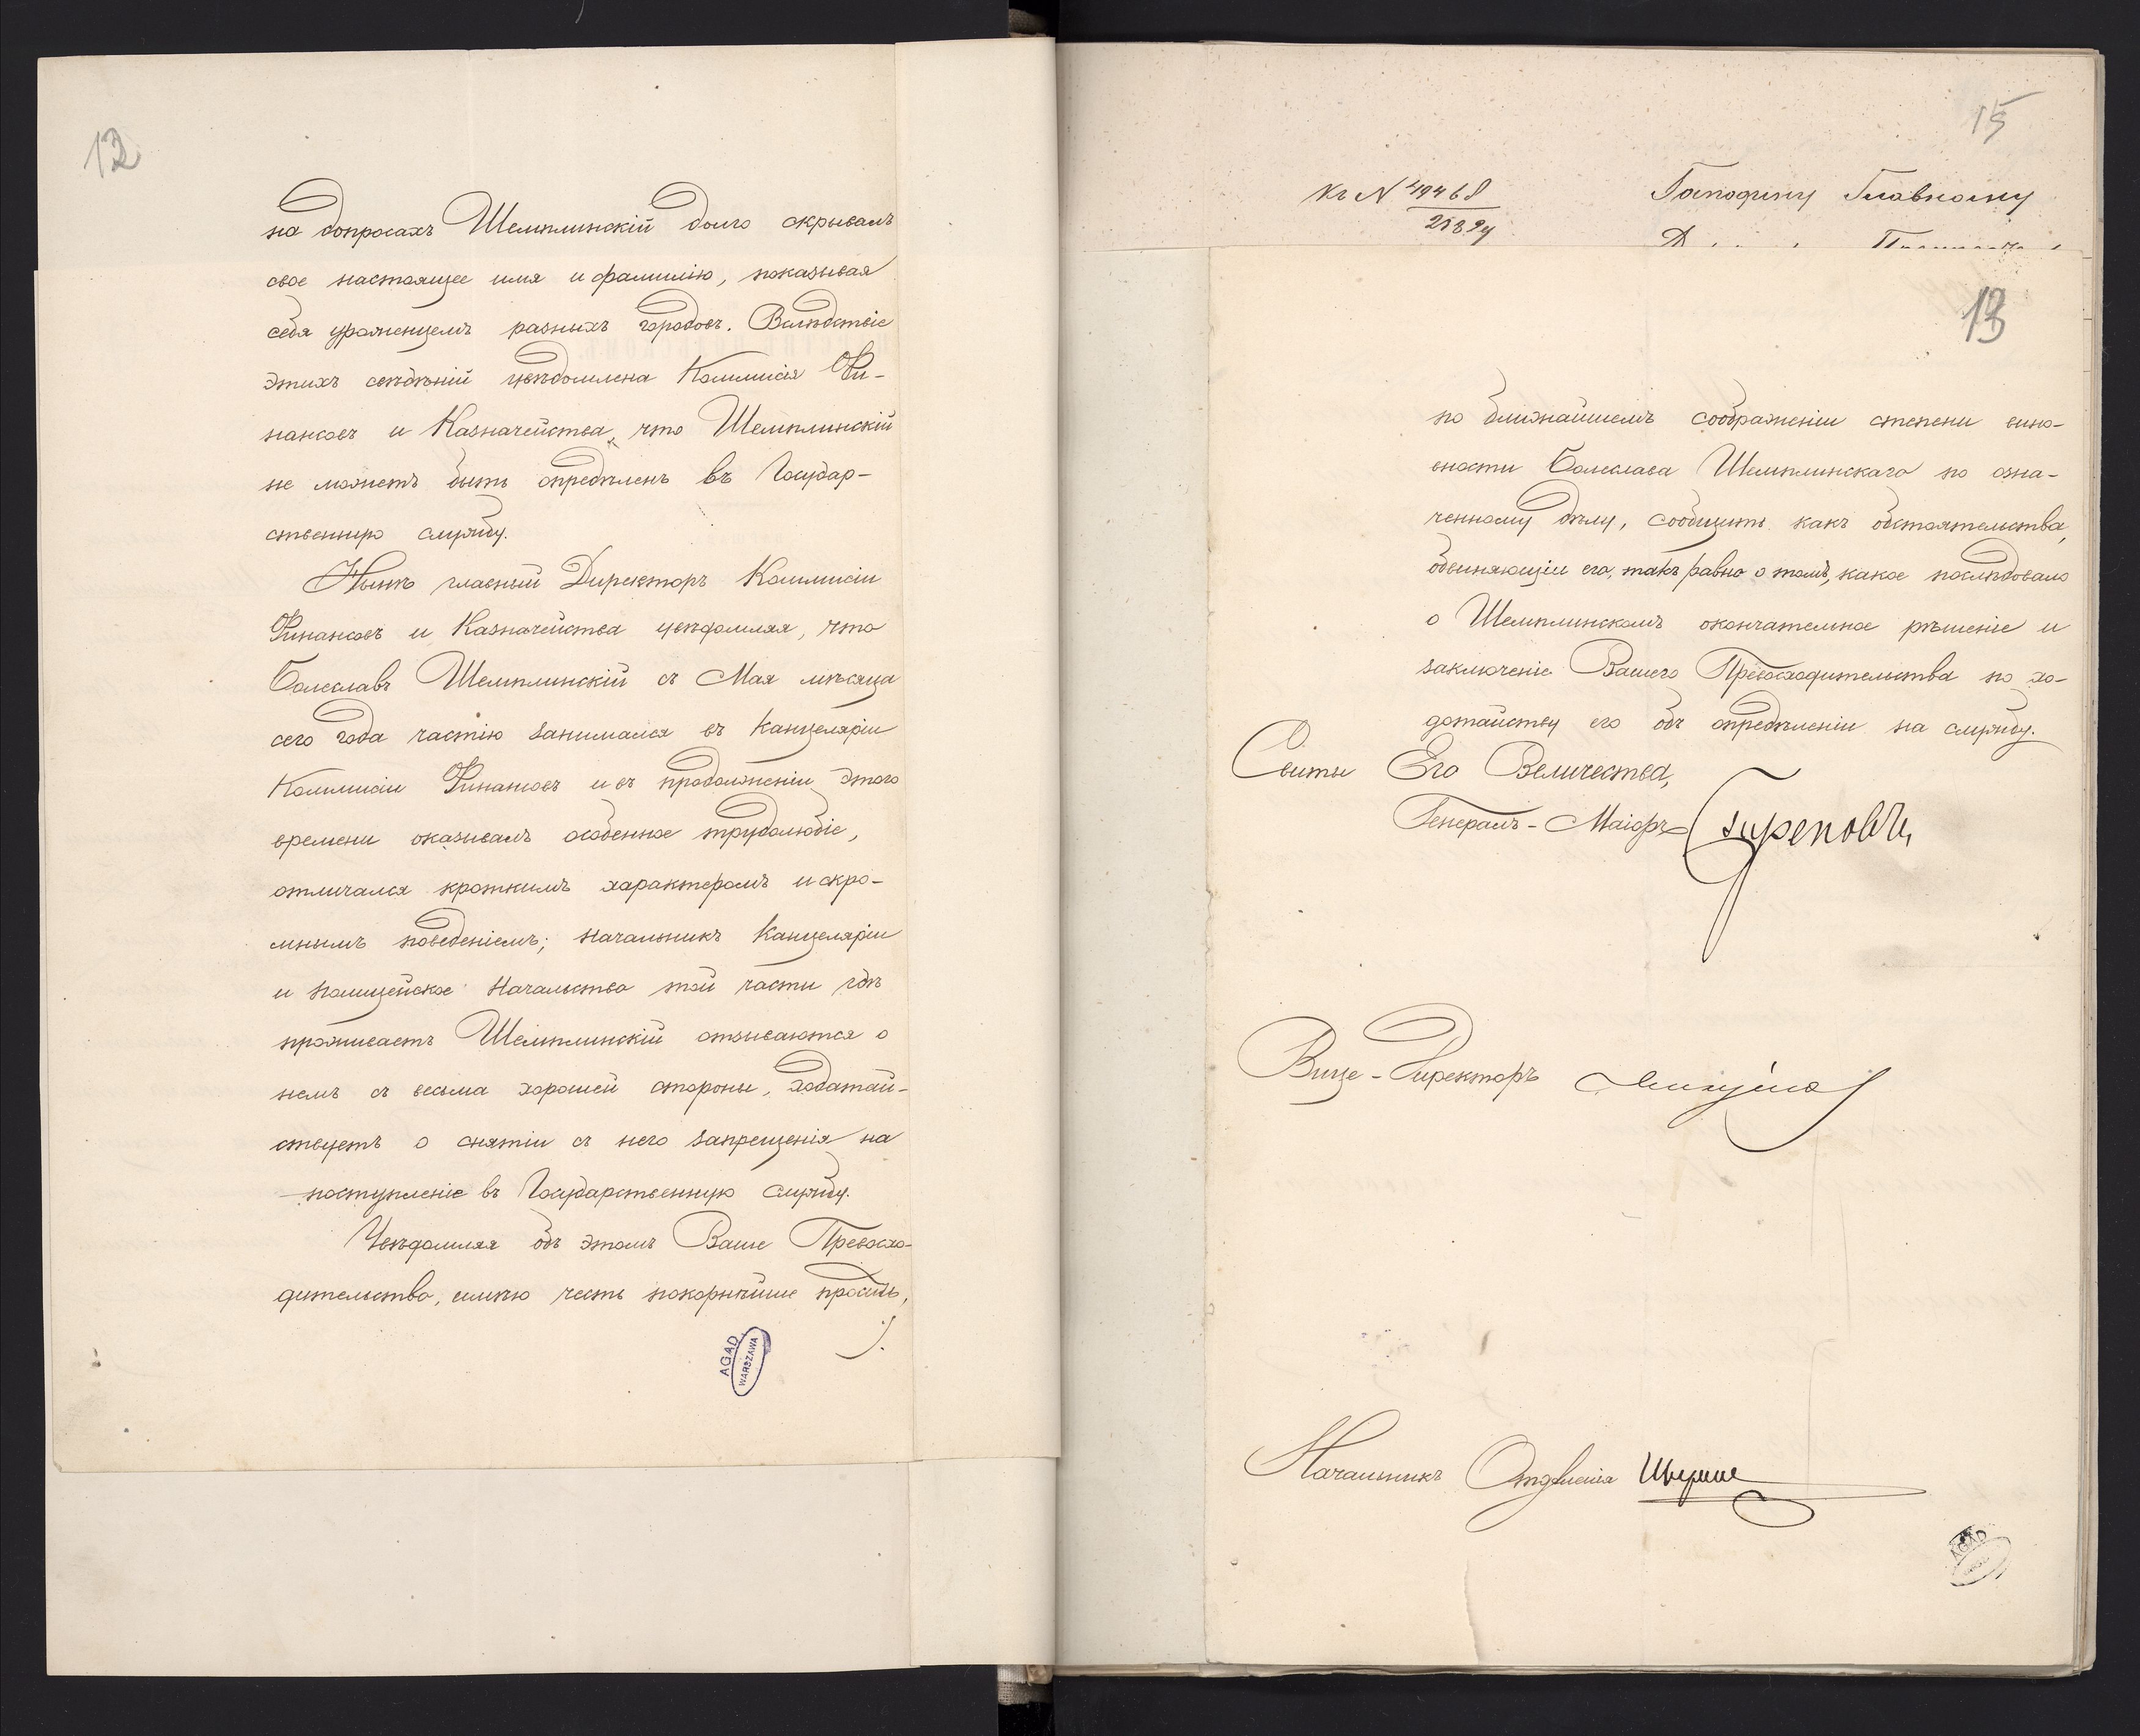 12
на допросахъ Шемплинскій долго скрывалъ
свое настоящее имя и фамилію, показывая
себя уроженцемъ разныхъ городовъ. Вслѣдствіе
этихъ свѣдѣній увѣдомлена Коммисія Фи-
нансовъ и Казначейства, что Шемплинскій
не можетъ быть опредѣленъ въ Государ-
ственную службу.
Нынѣ главный Директоръ Коммисіи
Финансовъ и Казначейства увѣдомляя, что
Болеславъ Шемплинскій съ Мая мѣсяца
сего года частію занимался въ Канцеляріи
Коммисіи Финансовъ и въ продолженіи этого
времени оказывалъ особенное трудолюбіе,
отличался кроткимъ характеромъ и скро-
мнымъ поведеніемъ; Начальникъ Канцеляріи
и полицейское Начальство той части гдѣ
проживаетъ Шемплинскій отзываются о
немъ съ весьма хорошей стороны, ходатай-
ствуетъ о снятіи съ него запрещенія на
поступленіе въ Государственную службу.
Увѣдомляя объ этомъ Ваше Превосхо-
дительство, имѣю честь покорнѣйше просить,
AGAD
WARSZAWA
15
Къ N 49468
Господину Главному
13
по ближайшемъ соображеніи степени вино-
вности Болеслава Шемплинскаго по озна-
ченному дѣлу, сообщить какъ обстоятельства,
обвиняющіи его, такъ равно о томъ, какое послѣдовало
о Шемплинскомъ окончательное рѣшеніе и
заключеніе Вашего Превосходительства по хо-
датайству его объ опредѣленіи на службу.
Свиты Его Величества,
Генералъ-Маіоръ
Вице-Директоръ
Начальникъ Отдѣленія
AGAD